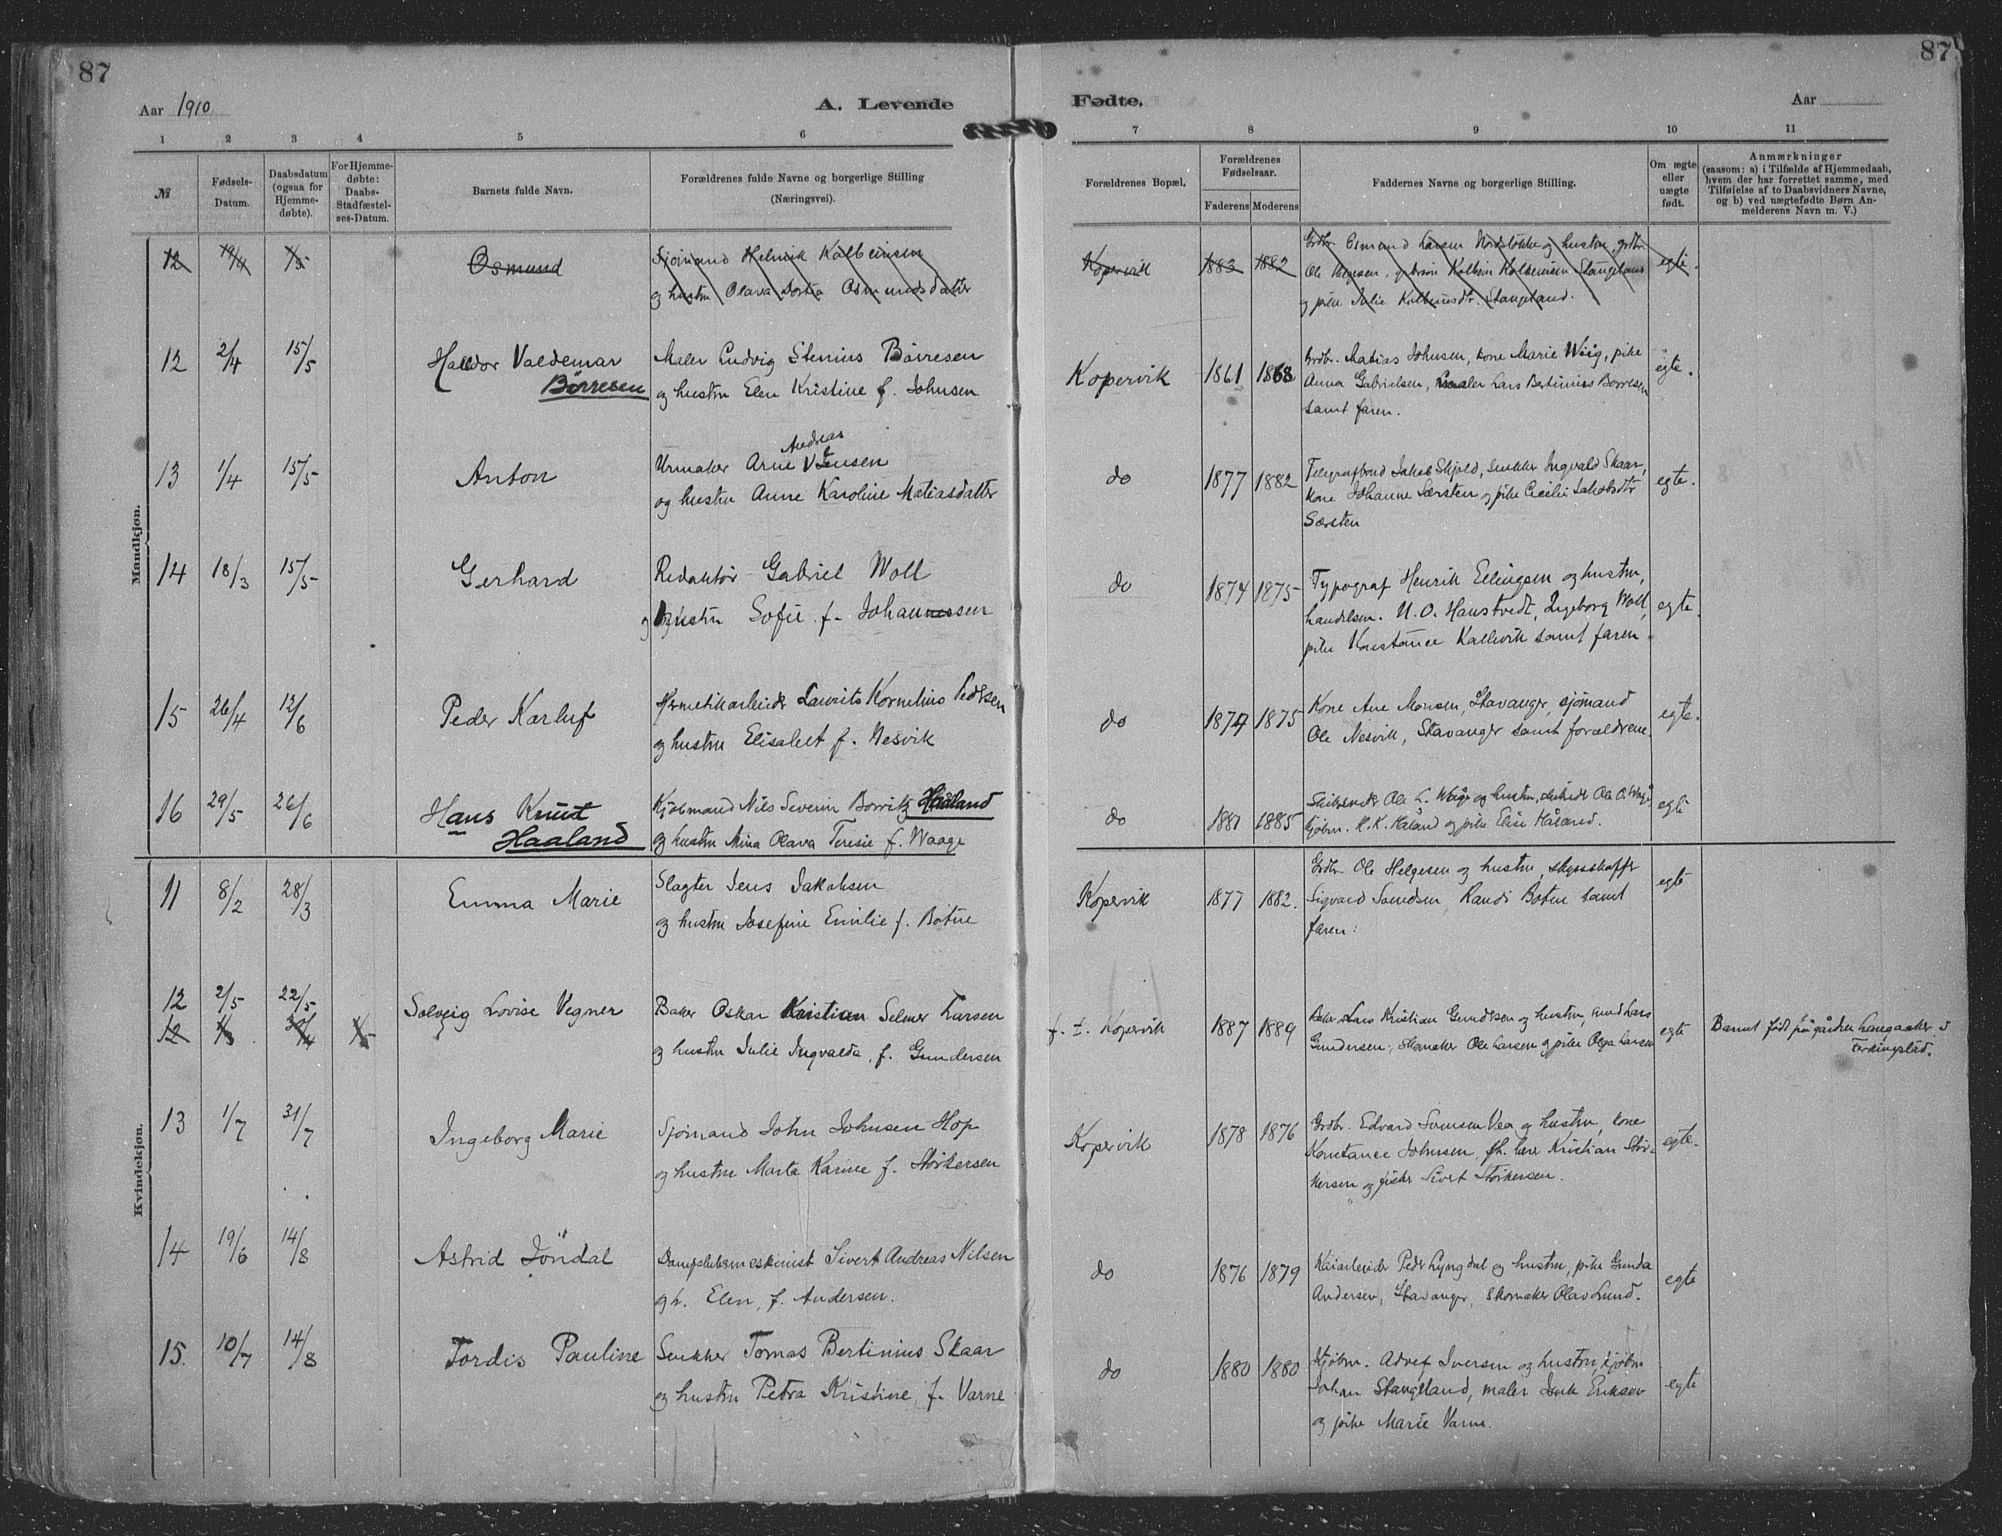 87
87
Aar 1910
A. Levende
Fødte.
Aar
1 2 3 4 5 6 7 8 9 10 11
№
Fødsels-Datum.
Daabsdatum (ogsaa for Hjemme-døbte).
For Hjemme-døbte: Daabs-Stadfæstel-ses-Datum.
Barnets fulde Navn.
Forældrenes fulde Navne og borgerlige Stilling
(Næringsvei).
Forældrenes Bopæl.
Forældrenes Fødselsaar.
Faderens Moderens
Faddernes Navne og borgerlige Stilling.
Om ægte eller uægte født.
Anmærkninger
(saasom: a) i Tilfælde af Hjemmedaab,
hvem der har forrettet samme, med
Tilføielse af to Daabsvidners Navne,
og b) ved uægtefødte Børn An-
melderens Navn m. V.)
Mandkjøn.
12 19/4 1/5 Osmund Sjømand Helmik Kolbeinsen Kopervik 1883 1882 Grdbr Osmund Larsen og hustru, grdbr egte.
og hustru Olava Dortea Osmundsdatter Ole Helgesen, Kolbein Kolbeinsen Stangeland
og pike Julie Kolbeinsdtr. Stangeland.
12 2/4 15/5 Halldor Valdemar Maler Ludvig Stenius Børresen Kopervik 1861 1868 Grdbr. Matias Johnsen, kone Marie Wiig, pike egte.
Børresen og hustru Elen Kristine f. Johnsen Anna Gabrielsen, maler Lars Bertinius Børresen
samt faren.
Andreas
13 1/4 15/5 Anton Urmaker Arne Jensen do 1877 1882 Telegrafbud Jakob Skjold, snekker Ingvald Skaar, egte.
og hustru Anne Karoline Matiasdatter kone Johanne Sørsten og pike Cecilie Jakobsdtr
Sørsten
14 18/3 15/5 Gerhard Redaktør Gabriel Woll do 1874 1875 Typograf Henrik Ellingsen og hustru, egte.
og hustru Sofie f. Johannessen handelsm. N. O. Haustvedt, Ingeborg Woll,
pike Konstance Kallevik samt faren.
15 26/4 12/6 Peder Karluf Hermetikarbeider Laurits Kornelius Pedersen do 1874 1875 Kone Ane Monsen, Stavanger, sjømand egte.
og hustru Elisabet f. Nesvik Ole Nesvik, Stavanger samt forældrene.
16 29/5 26/6 Hans Knut Kjøbmand Nils Severin Borritz Haaland do 1881 1885 Ole L. Waage og hustru, Ole O. Waage egte
Haaland og hustru Mina Olava Teresie f. Waage kjøbm. K. K. Håland og pike Elise Håland.
Kvindekjøn.
11 8/2 28/3 Emma Marie Slagter Jens Jakobsen Kopervik 1877 1882. Grdbr. Ole Helgesen og hustru, skysskaffer egte
og hustru Josefine Emilie f. Botne Sigvard Samdsen, Randi Boten samt
faren.
12 2/5 22/5 Solveig Lovise Vegner Baker Oskar Kristian Selmer Larsen f. t. Kopervik 1887 1889 Baker Lars Kristian Gundersen og hustru, Lars egte Barnet født på gården Langaaker i
12 og hustru Julie Ingvalda, f. Gundersen Gundersen, Skomaker Ole Larsen og pike Olga Larsen Ferkingstad.
13 1/7 31/7 Ingeborg Marie Sjømand John Johnsen Hop Kopervik 1878 1876 Grdbr. Edvard Svensen Vea og hustru, kone egte.
og hustru Marta Karine f. Størkersen Konstance Johnsen, Kristian Stør-
kersen og fisker Sivert Størkersen.
14 19/6 14/8 Astrid Jöndal Dampskibsmaskinist Sivert Andreas Nilsen do 1876 1879 Kaiarbeider Peder Lyngdal og hustru, pike Gunda egte
og h. Elen, f. Andersen. Andersen, Stavanger, skomaker Olav Lund.
15. 10/7 14/8 Tordis Pauline Snekker Tomas Bertinius Skaar do 1880 1880 Kjøbm. Advef Iversen og hustru, kjøbm egte
og hustru Petra Kristine, f. Varne Johan Stangeland, maler Isak Erikson
og pike Marie Varne.